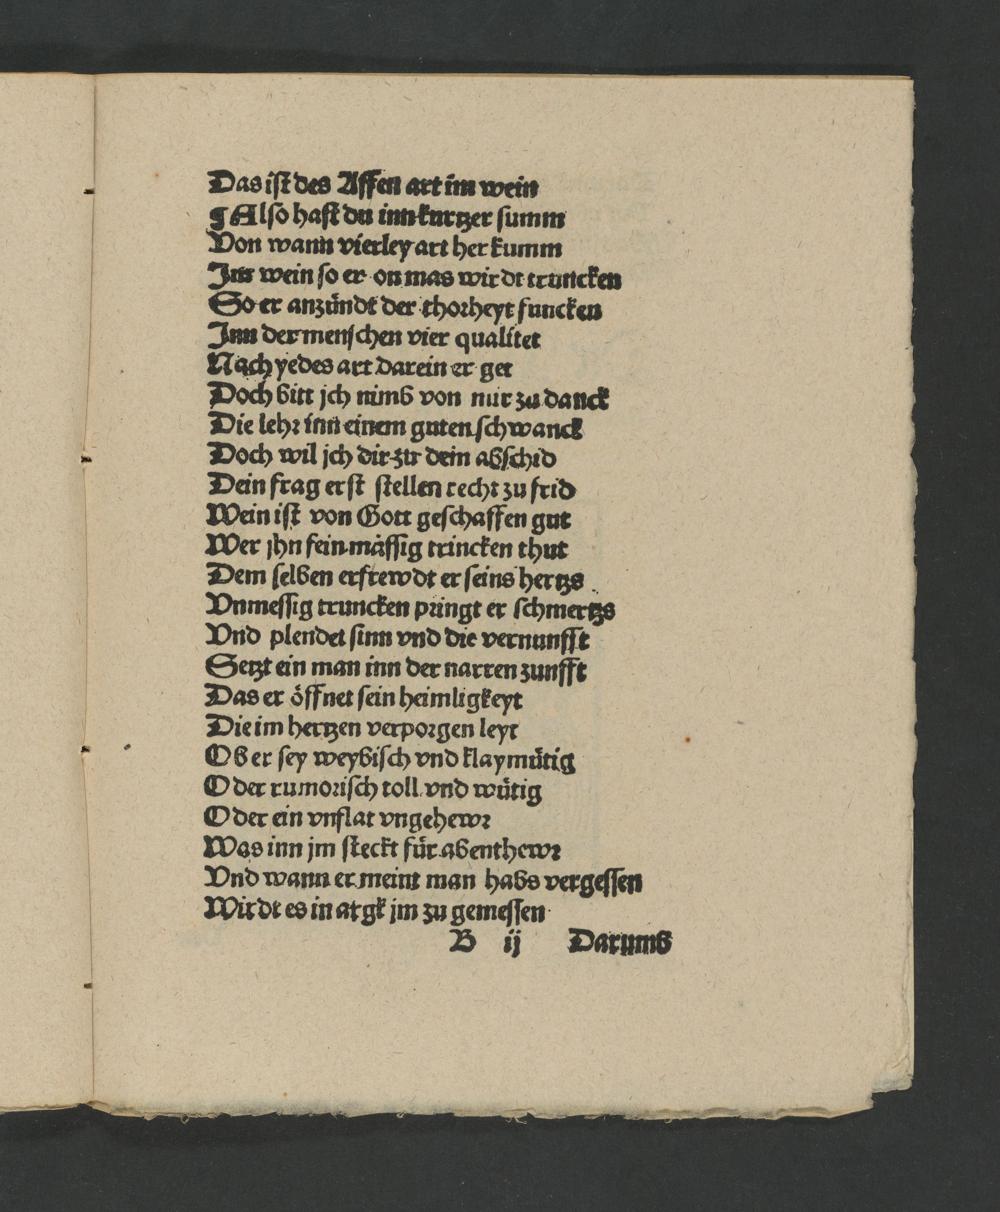 Das ist des Affen art im wein
¶ Also hast du inn kurtzer summ
Von wann vierley art her kumm
Im wein so er on mas wirdt truncken
So er anzündt der thorheyt funcken
Inn der menschen vier qualitet
Nach yedes art darein er get
Doch bitt jch nimb von mir zu danck
Die lehr inn einem guten schwanck
Doch wil jch dir zu dein abschid
Dein frag erst stellen recht zu frid
Wein ist von Gott geschaffen gut
Wer jhn fein mässig trincken thut
Dem selben erfrewdt er seins hertzs
Vnmessig truncken pringt er schmertzs
Vnd plendet sinn vnd die vernunfft
Setzt ein man inn der narren zunfft
Das er öffnet sein heimligkeyt
Die im hertzen verporgen leyt
Ob er sey weybisch vnd klaymütig
Oder rumorisch toll vnd wütig
Oder ein vnflat vngehewr
Was inn jm steckt für abenthewr
Vnd wann er meint man habs vergessen
Wirdt es in argk jm zu gemessen
B ij Darumb